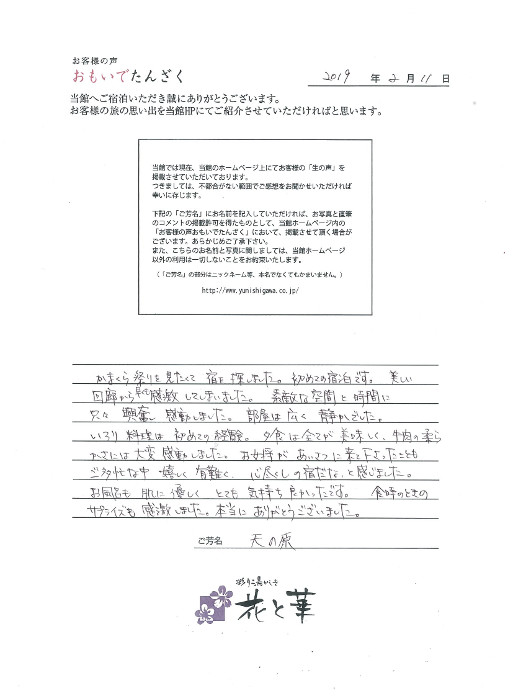 お客様の声
おもいでたんざく
2019 年 2月 11日
当館へご宿泊いただき誠にありがとうございます。
お客様の旅の思い出を当館HPにてご紹介させていただければと思います。
当館では現在、当館のホームページ上にてお客様の「生の声」を
掲載させていただいております。
つきましては、不都合がない範囲でご感想をお聞かせいただければ
幸いに存じます。
下記の「ご芳名」にお名前を記入していただければ、お写真と直筆
のコメントの掲載許可を得たものとして、当館ホームページ内の
「お客様の声おもいでたんざく」において、掲載させて頂く場合が
ございます。あらかじめご了承下さい。
また、こちらのお名前と写真に関しましては、当館ホームページ
以外の利用は一切しないことをお約束いたします。
（「ご芳名」の部分はニックネーム等、本名でなくてもかまいません。）
http://www.yunishigawa.co.jp/
かまくら祭りを見たくて 宿を探しました。初めての宿泊です。 美しい
回廊から 感激してしまいました。 素敵な空間と時間に
只々 興奮し 感動しました。 部屋は広く 静かでした。
いろり料理は 初めての経験。 夕食は全てが美味しく、牛肉の柔ら
かさには大変感動しました。 お女将が あいさつに来て下さったことも
ご多忙な中 嬉しく 有難く、心尽くしの宿だな、と感じました。
お風呂も 肌に優しく とても 気持ち良かったです。 食時のときの
サプライズも 感激しました。本当に ありがとうございました。
ご芳名 天の原
花と華